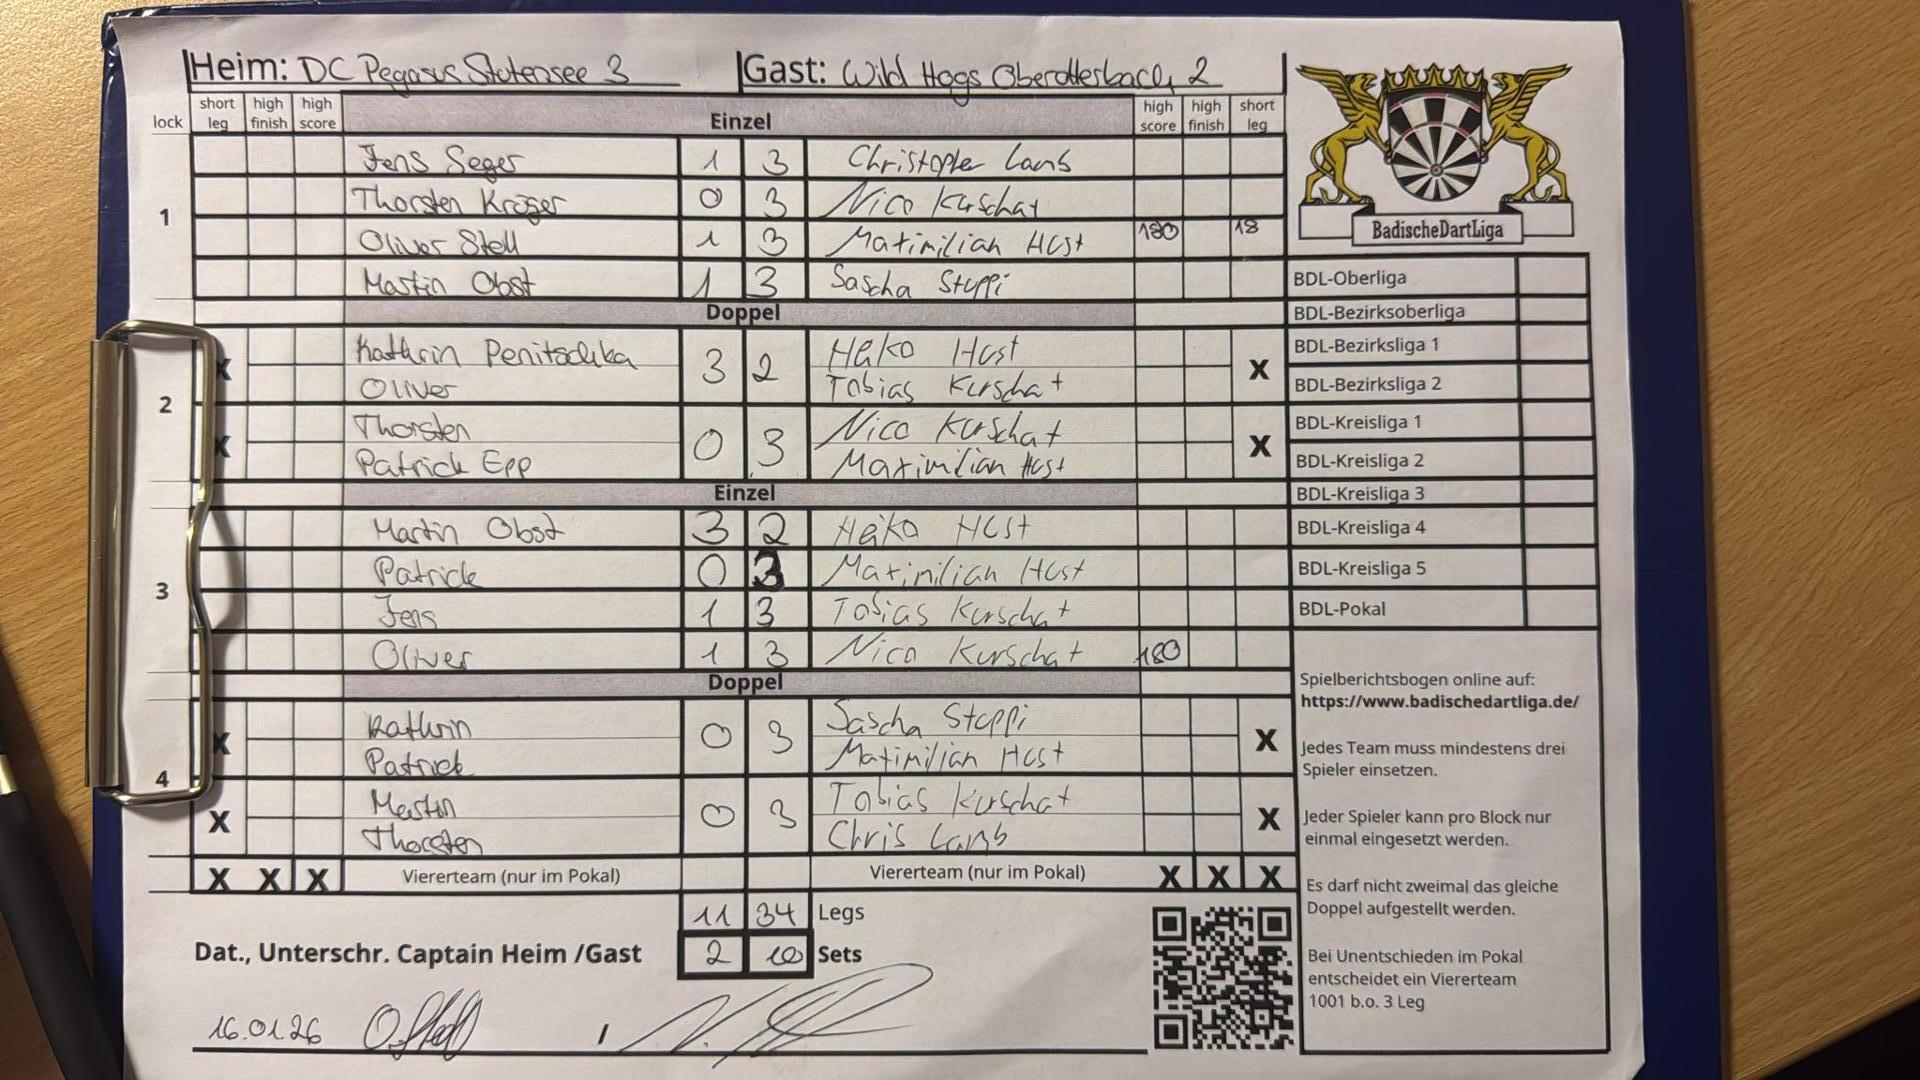 Heim: DC Pegasus Stutensee 3 Gast: Wild Hogs Oberotterbach 2
lock short leg high finish high score Einzel high score high finish short leg
1
Jens Seger 1 3 Christopher Lamb
Thorsten Kröger 0 3 Nico Kurschat
Oliver Stell 1 3 Maximilian Hust 180 18
Martin Obst 1 3 Sascha Stuppi
Doppel
2
Kathrin Penitschka 3 2 Heiko Hust
X Oliver Tobias Kurschat X
Thorsten 0 3 Nico Kurschat
X Patrick Epp Maximilian Hust X
Einzel
3
Martin Obst 3 2 Heiko Hust
Patrick 0 3 Maximilian Hust
Jens 1 3 Tobias Kurschat
Oliver 1 3 Nico Kurschat 180
Doppel
4
Kathrin 0 3 Sascha Stuppi
X Patrick Maximilian Hust X
Martin 0 3 Tobias Kurschat
X Thorsten Chris Lamb X
X X X Viererteam (nur im Pokal) Viererteam (nur im Pokal) X X X
11 34 Legs
Dat., Unterschr. Captain Heim /Gast 2 10 Sets
16.01.26 /
BadischeDartLiga
BDL-Oberliga
BDL-Bezirksoberliga
BDL-Bezirksliga 1
BDL-Bezirksliga 2
BDL-Kreisliga 1
BDL-Kreisliga 2
BDL-Kreisliga 3
BDL-Kreisliga 4
BDL-Kreisliga 5
BDL-Pokal
Spielberichtsbogen online auf:
https://www.badischedartliga.de/
Jedes Team muss mindestens drei
Spieler einsetzen.
Jeder Spieler kann pro Block nur
einmal eingesetzt werden.
Es darf nicht zweimal das gleiche
Doppel aufgestellt werden.
Bei Unentschieden im Pokal
entscheidet ein Viererteam
1001 b.o. 3 Leg